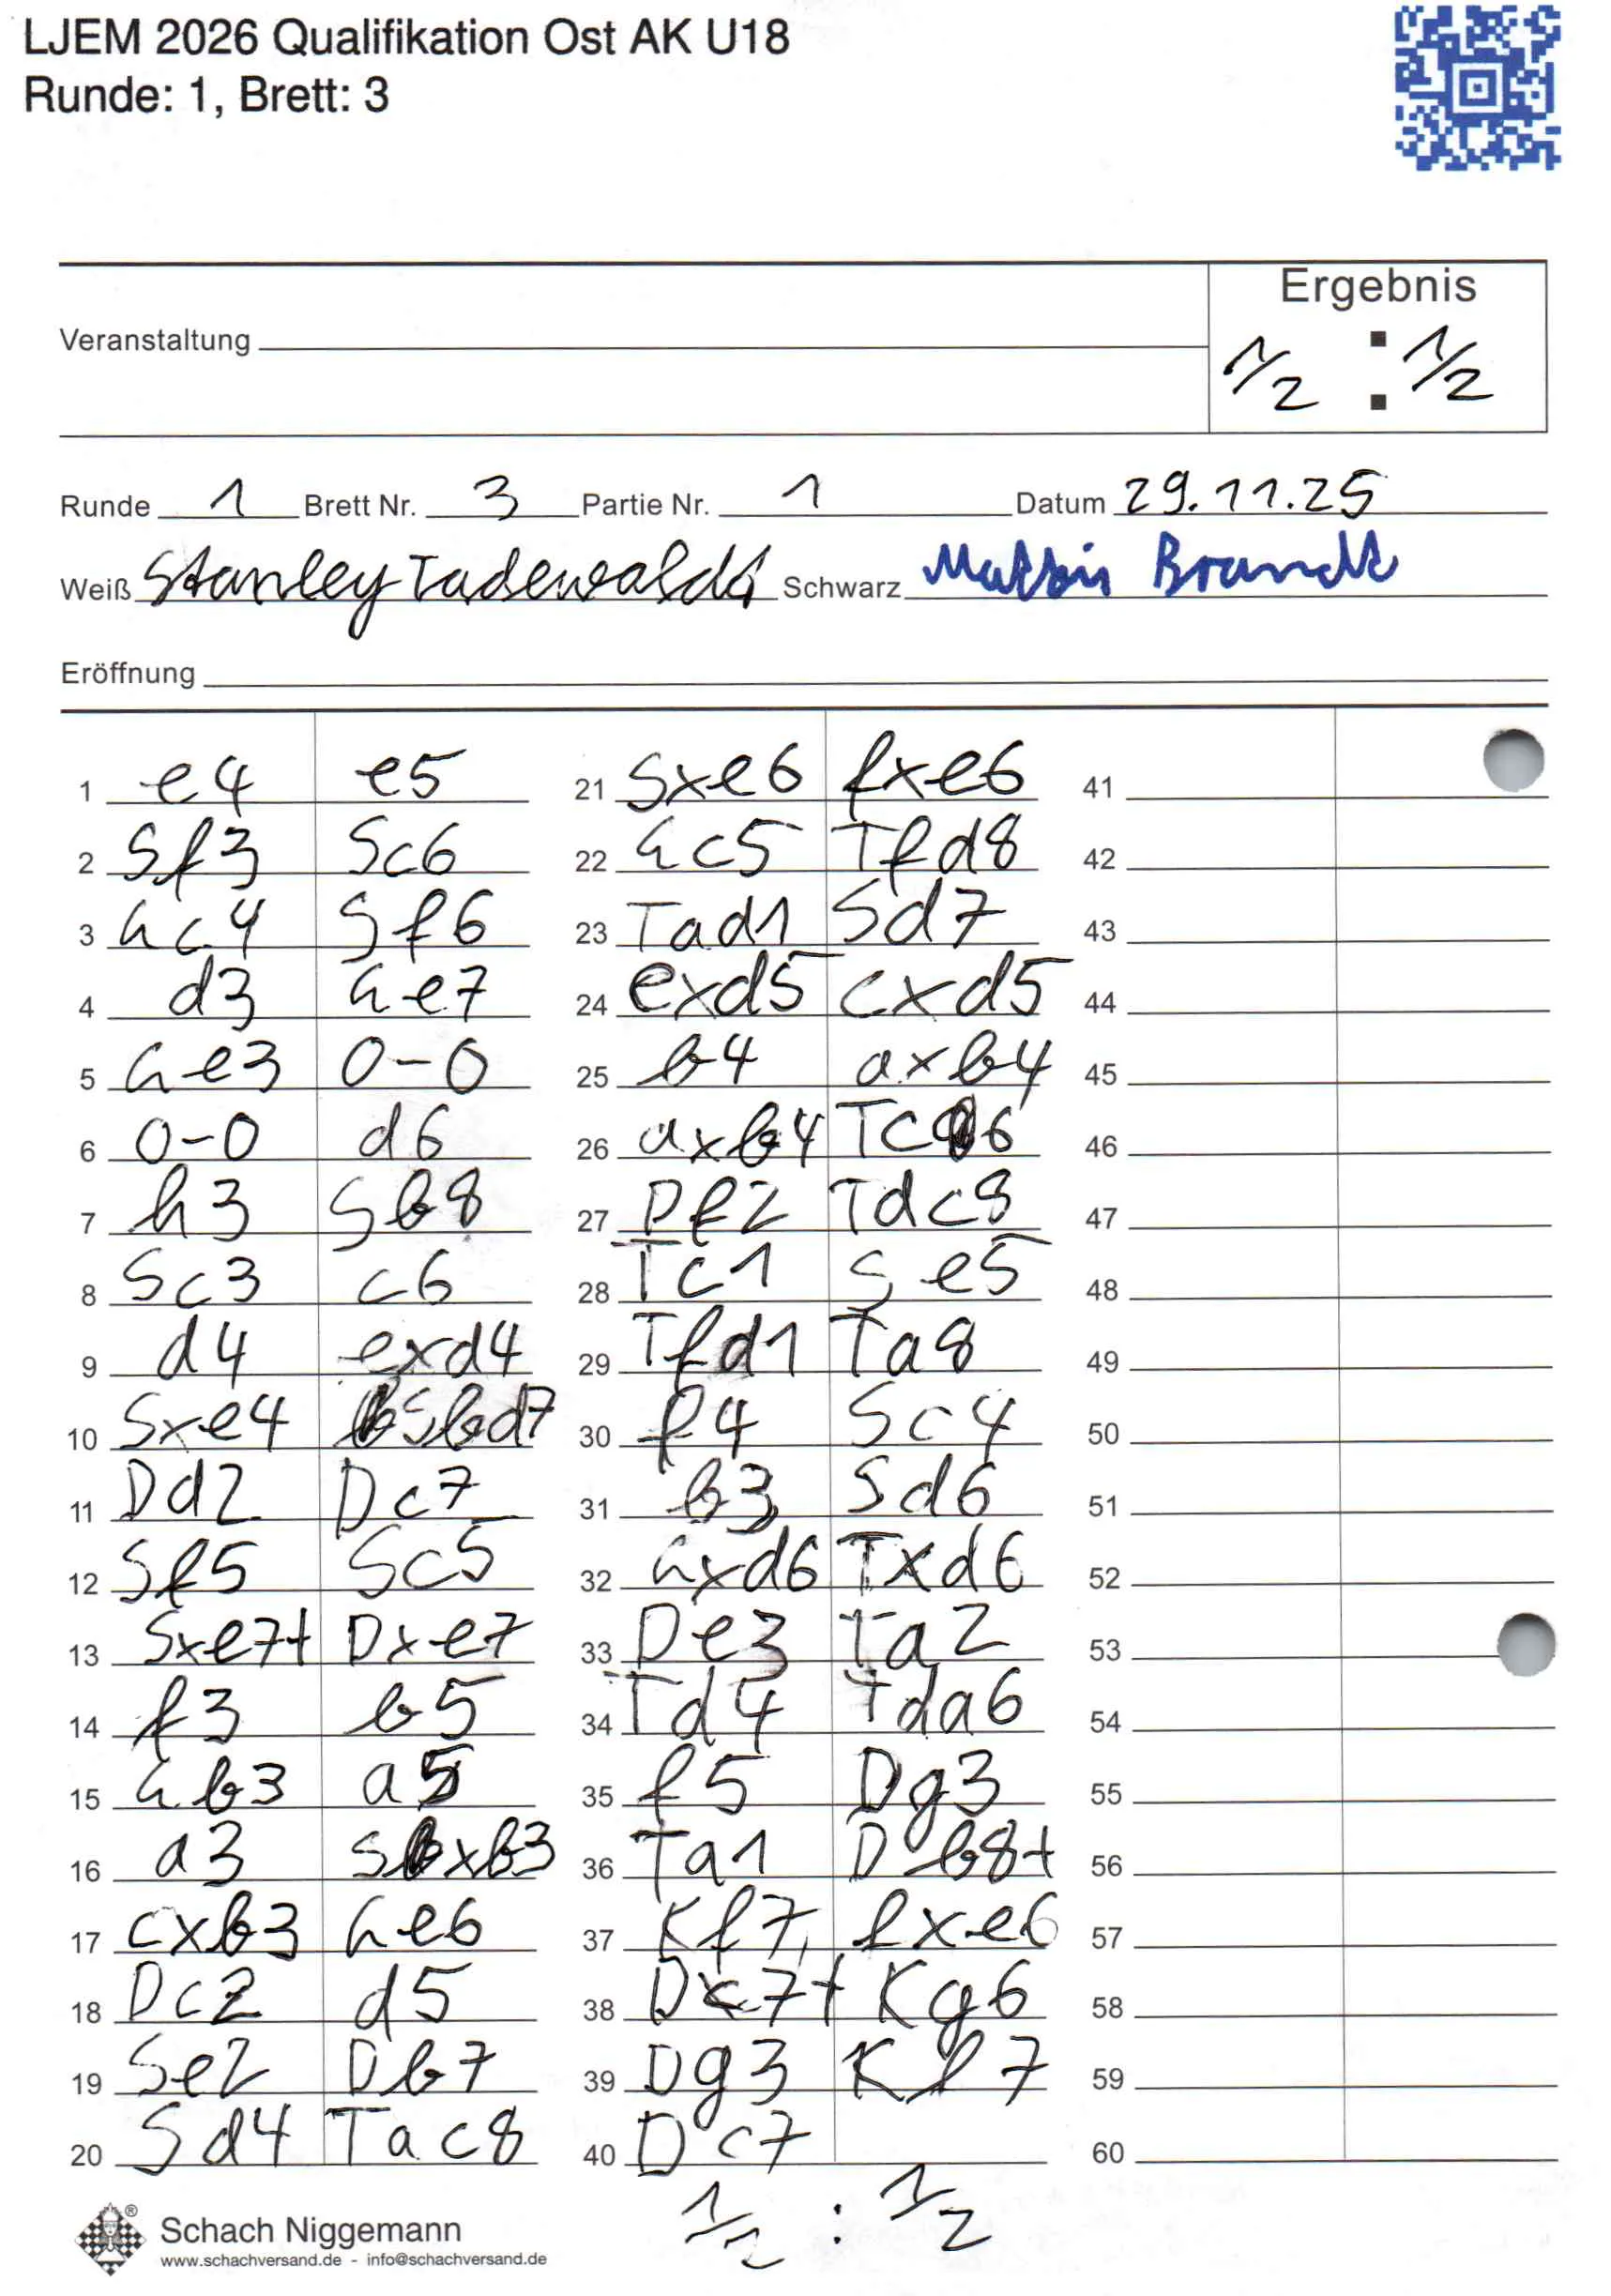 LJEM 2026 Qualifikation Ost AK U18
Runde: 1, Brett: 3
Ergebnis
Veranstaltung
1/2 : 1/2
Runde 1 Brett Nr. 3 Partie Nr. 1 Datum 29.11.25
Weiß Stanley Tadewaldt Schwarz Mathis Brandt
Eröffnung
1 e4 e5
2 Sf3 Sc6
3 Lc4 Sf6
4 d3 Le7
5 Le3 0-0
6 0-0 d6
7 h3 Sb8
8 Sc3 c6
9 d4 exd4
10 Sxe4 Sbd7
11 Dd2 Dc7
12 Sf5 Sc5
13 Sxe7+ Dxe7
14 f3 b5
15 Lb3 a5
16 a3 Sxb3
17 cxb3 Le6
18 Dc2 d5
19 Se2 Db7
20 Sd4 Tac8
21 Sxe6 fxe6
22 Lc5 Tfd8
23 Tad1 Sd7
24 exd5 cxd5
25 b4 axb4
26 axb4 Tc6
27 Df2 Tdc8
28 Tc1 Se5
29 Tfd1 Ta8
30 f4 Sc4
31 b3 Sd6
32 Lxd6 Txd6
33 De3 Ta2
34 Td4 Tda6
35 f5 Dg3
36 Ta1 Db8+
37 Kf7, fxe6
38 Dc7+ Kg6
39 Dg3 Kf7
40 Dc7
1/2 : 1/2
41
42
43
44
45
46
47
48
49
50
51
52
53
54
55
56
57
58
59
60
Schach Niggemann
www.schachversand.de - info@schachversand.de